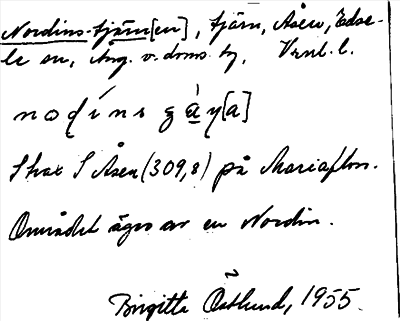 Nordins-tjärn[en], tjärn, Åsen, Edse-
le sn, Ång. v. doms. tg, Vrnl. l.
Strax S Åsen (309,8) på Mariaflon.
Området äges av en Nordin.
Birgitta Östlund, 1955.